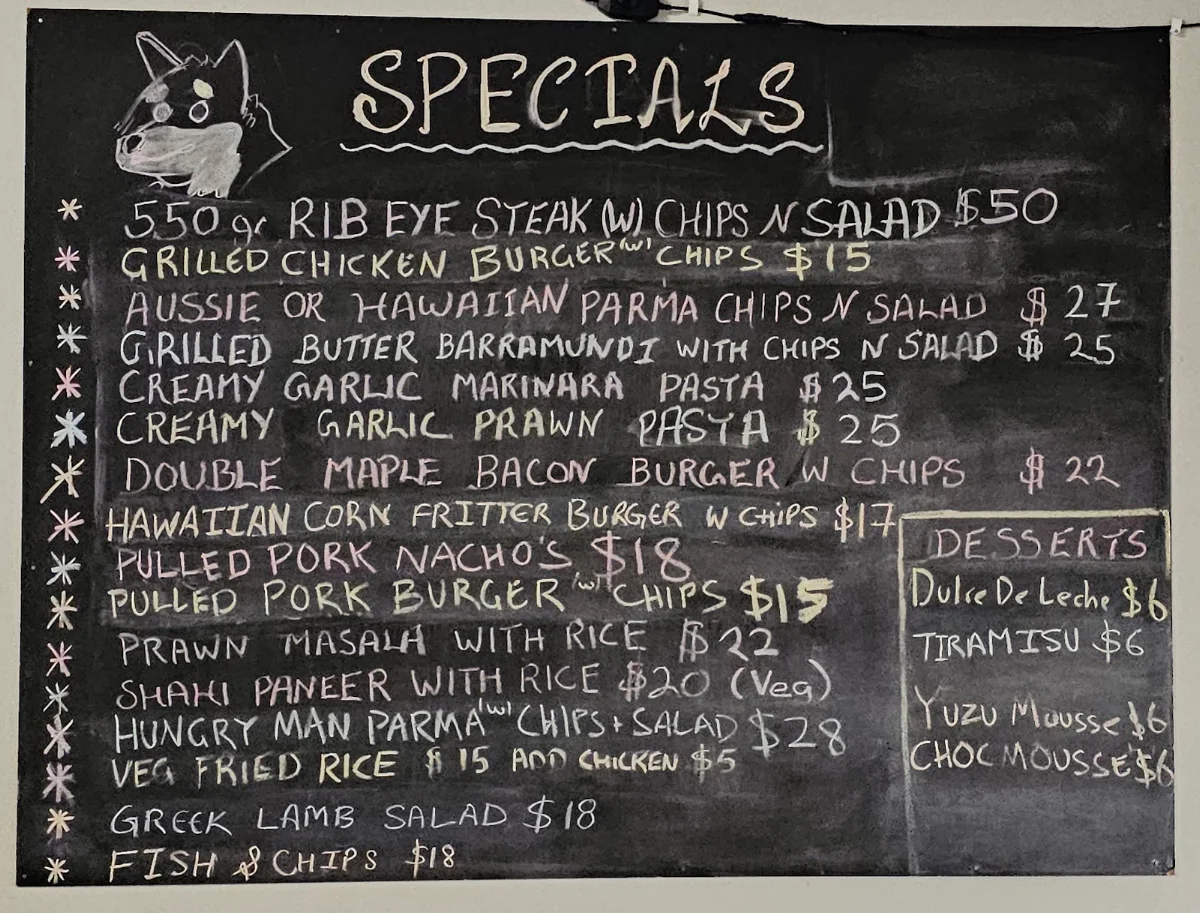 SPECIALS
* 550 gr RIB EYE STEAK (W) CHIPS N SALAD $50
* GRILLED CHICKEN BURGER (W) CHIPS $15
* AUSSIE OR HAWAIIAN PARMA CHIPS N SALAD $27
* GRILLED BUTTER BARRAMUNDI WITH CHIPS N SALAD $25
* CREAMY GARLIC MARINARA PASTA $25
* CREAMY GARLIC PRAWN PASTA $25
* DOUBLE MAPLE BACON BURGER W CHIPS $22
* HAWAIIAN CORN FRITTER BURGER W CHIPS $17
* PULLED PORK NACHO'S $18
* PULLED PORK BURGER (W) CHIPS $15
* PRAWN MASALA WITH RICE $22
* SHAHI PANEER WITH RICE $20 (Veg)
* HUNGRY MAN PARMA (W) CHIPS + SALAD $28
* VEG FRIED RICE $15 ADD CHICKEN $5
* GREEK LAMB SALAD $18
* FISH & CHIPS $18
DESSERTS
Dulce De Leche $6
TIRAMISU $6
Yuzu Mousse $6
CHOC MOUSSE $6